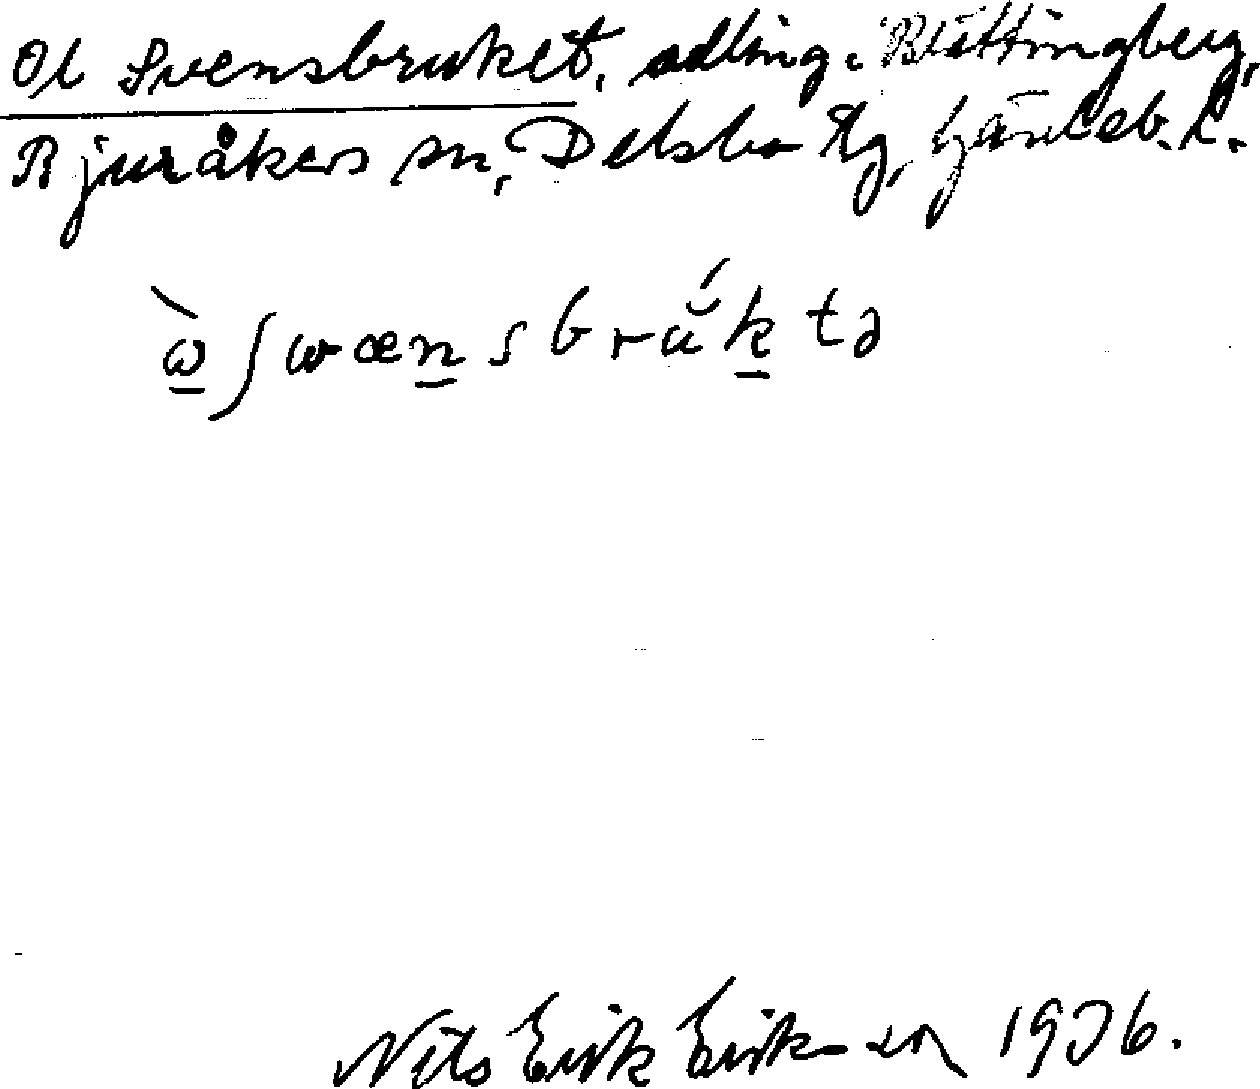 Ol Svensbruket, odling. Blåttingberg,
Bjuråkers sn, Delsbo tg, Gävleb. l.
Nils Erik Eriksson 1936.